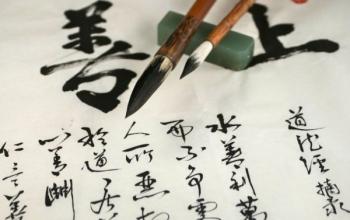 上善
道德经摘录
水善利萬
而不争處
人所惡故
於道居善
心善淵
仁言善